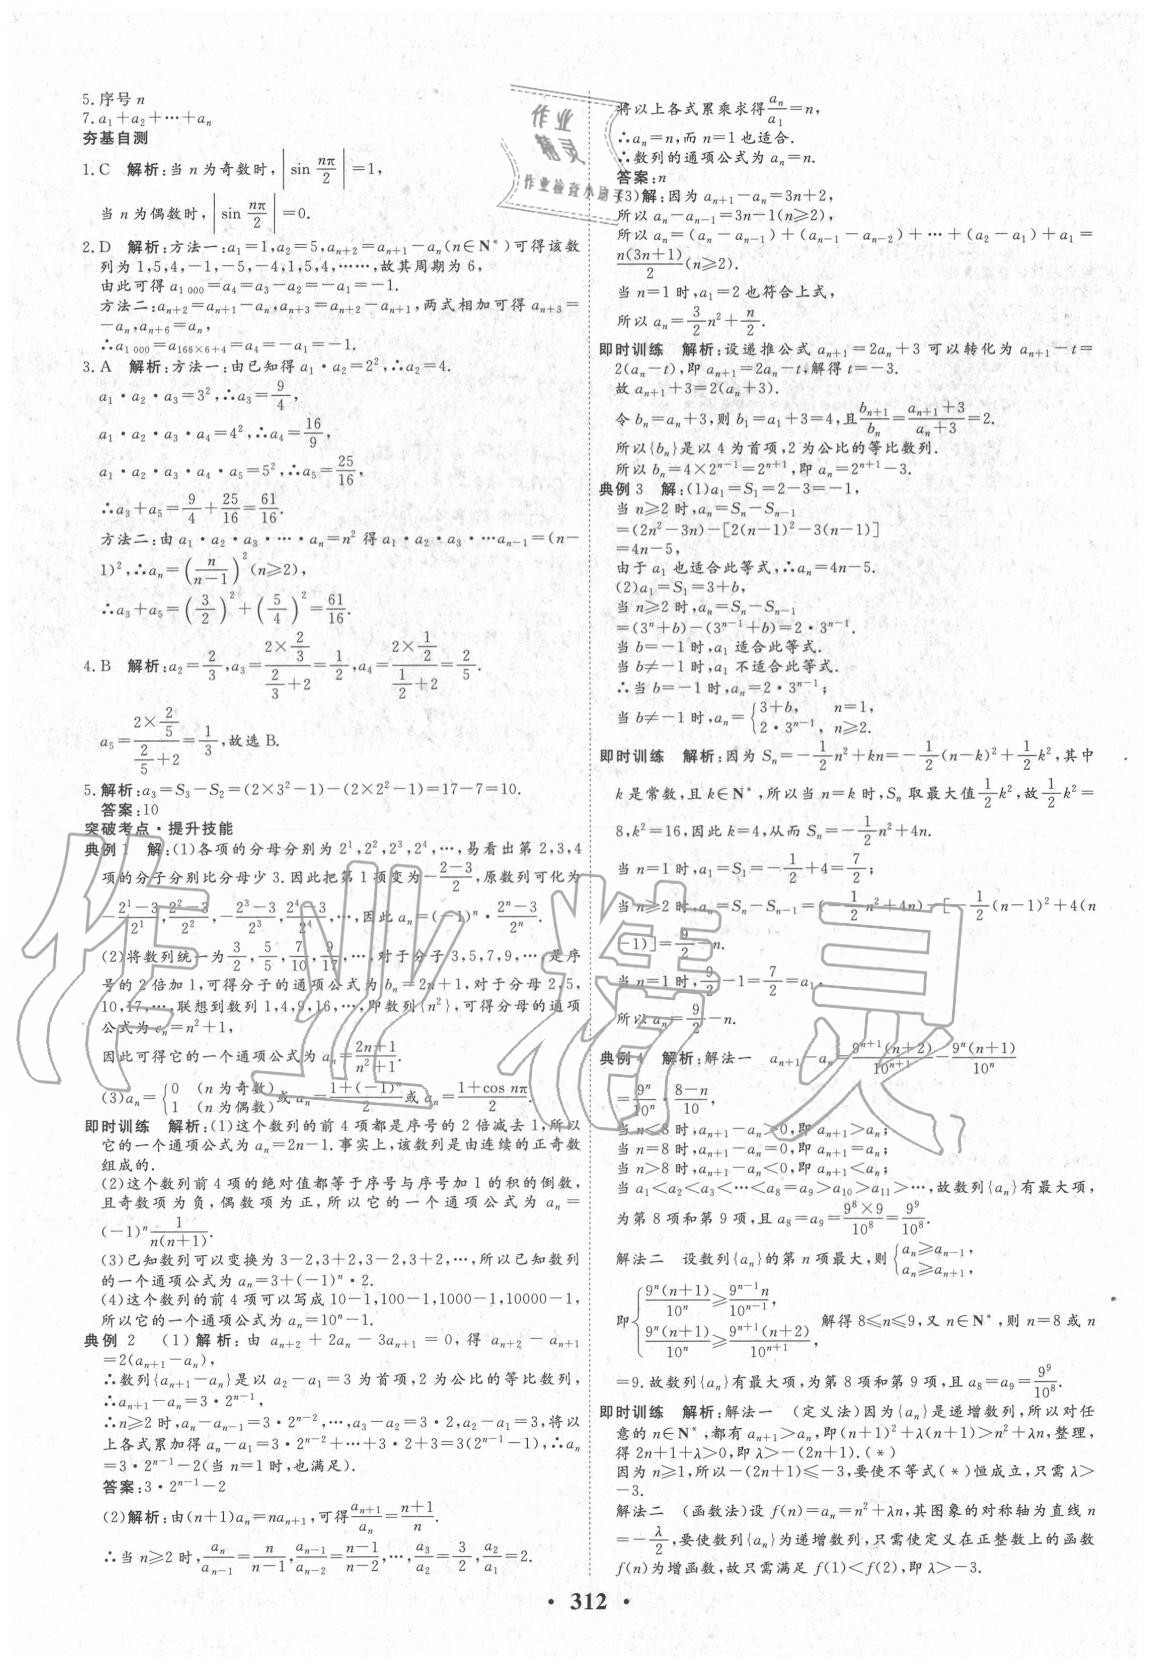 5.序号n
7.a₁+a₂+…+aₙ
夯基自测
1.C 解析:当n为奇数时,|sin nπ/2|=1,
当n为偶数时,|sin nπ/2|=0.
2.D 解析:方法一:a₁=1,a₂=5,aₙ₊₂=aₙ₊₁-aₙ(n∈N*)可得该数
列为1,5,4,-1,-5,-4,1,5,4,……,故其周期为6,
由此可得a₁₀₀₀=a₄=a₃-a₂=-a₁=-1.
方法二:aₙ₊₂=aₙ₊₁-aₙ,aₙ₊₃=aₙ₊₂-aₙ₊₁,两式相加可得aₙ₊₃=
-aₙ,aₙ₊₆=aₙ,
∴a₁₀₀₀=a₁₆₆ₓ₆₊₄=a₄=-a₁=-1.
3.A 解析:方法一:由已知得a₁·a₂=2²,∴a₂=4.
a₁·a₂·a₃=3²,∴a₃=9/4,
a₁·a₂·a₃·a₄=4²,∴a₄=16/9,
a₁·a₂·a₃·a₄·a₅=5²,∴a₅=25/16,
∴a₃+a₅=9/4+25/16=61/16.
方法二:由a₁·a₂·a₃·…·aₙ=n²得a₁·a₂·a₃·…aₙ₋₁=(n-
1)²,∴aₙ=(n/(n-1))²(n≥2),
∴a₃+a₅=(3/2)²+(5/4)²=61/16.
4.B 解析:a₂=2/3,a₃=(2×2/3)/(2/3+2)=1/2,a₄=(2×1/2)/(1/2+2)=2/5.
a₅=(2×2/5)/(2/5+2)=1/3,故选B.
5.解析:a₃=S₃-S₂=(2×3²-1)-(2×2²-1)=17-7=10.
答案:10
突破考点·提升技能
典例1 解:(1)各项的分母分别为2¹,2²,2³,2⁴,…,易看出第2,3,4
项的分子分别比分母少3.因此把第1项变为-(2-3)/2,原数列可化为
-(2¹-3)/2¹,(2²-3)/2²,-(2³-3)/2³,(2⁴-3)/2⁴,…,因此aₙ=(-1)ⁿ·(2ⁿ-3)/2ⁿ.
(2)将数列统一为3/2,5/5,7/10,9/17,…,对于分子3,5,7,9,…,是序
号的2倍加1,可得分子的通项公式为bₙ=2n+1,对于分母2,5,
10,17,…,联想到数列1,4,9,16,…,即数列{n²},可得分母的通项
公式为cₙ=n²+1,
因此可得它的一个通项公式为aₙ=(2n+1)/(n²+1).
(3)aₙ={0 (n为奇数) 1 (n为偶数)或aₙ=(1+(-1)ⁿ)/2或aₙ=(1+cos nπ)/2.
即时训练 解析:(1)这个数列的前4项都是序号的2倍减去1,所以
它的一个通项公式为aₙ=2n-1.事实上,该数列是由连续的正奇数
组成的.
(2)这个数列前4项的绝对值都等于序号与序号加1的积的倒数,
且奇数项为负,偶数项为正,所以它的一个通项公式为aₙ=
(-1)ⁿ 1/(n(n+1)).
(3)已知数列可以变换为3-2,3+2,3-2,3+2,…,所以已知数列
的一个通项公式为aₙ=3+(-1)ⁿ·2.
(4)这个数列的前4项可以写成10-1,100-1,1000-1,10000-1,
所以它的一个通项公式为aₙ=10ⁿ-1.
典例2 (1)解析:由aₙ₊₂+2aₙ-3aₙ₊₁=0,得aₙ₊₂-aₙ₊₁
=2(aₙ₊₁-aₙ),
∴数列{aₙ₊₁-aₙ}是以a₂-a₁=3为首项,2为公比的等比数列,
∴aₙ₊₁-aₙ=3·2ⁿ⁻¹,
∴n≥2时,aₙ-aₙ₋₁=3·2ⁿ⁻²,…,a₃-a₂=3·2,a₂-a₁=3,将以
上各式累加得aₙ-a₁=3·2ⁿ⁻²+…+3·2+3=3(2ⁿ⁻¹-1),∴aₙ
=3·2ⁿ⁻¹-2(当n=1时,也满足).
答案:3·2ⁿ⁻¹-2
(2)解析:由(n+1)aₙ=naₙ₊₁,可得aₙ₊₁/aₙ=(n+1)/n.
∴当n≥2时,aₙ/aₙ₋₁=n/(n-1),aₙ₋₁/aₙ₋₂=(n-1)/(n-2),…,a₃/a₂=3/2,a₂/a₁=2.
将以上各式累乘求得aₙ/a₁=n,
∴aₙ=n,而n=1也适合.
∴数列的通项公式为aₙ=n.
答案:n
(3)解:因为aₙ₊₁-aₙ=3n+2,
所以aₙ-aₙ₋₁=3n-1(n≥2),
所以aₙ=(aₙ-aₙ₋₁)+(aₙ₋₁-aₙ₋₂)+…+(a₂-a₁)+a₁=
n(3n+1)/2(n≥2).
当n=1时,a₁=2也符合上式,
所以aₙ=3/2n²+n/2.
即时训练 解析:设递推公式aₙ₊₁=2aₙ+3可以转化为aₙ₊₁-t=
2(aₙ-t),即aₙ₊₁=2aₙ-t,解得t=-3.
故aₙ₊₁+3=2(aₙ+3).
令bₙ=aₙ+3,则b₁=a₁+3=4,且bₙ₊₁/bₙ=(aₙ₊₁+3)/(aₙ+3)=2.
所以{bₙ}是以4为首项,2为公比的等比数列.
所以bₙ=4×2ⁿ⁻¹=2ⁿ⁺¹,即aₙ=2ⁿ⁺¹-3.
典例3 解:(1)a₁=S₁=2-3=-1,
当n≥2时,aₙ=Sₙ-Sₙ₋₁
=(2n²-3n)-[2(n-1)²-3(n-1)]
=4n-5,
由于a₁也适合此等式,∴aₙ=4n-5.
(2)a₁=S₁=3+b,
当n≥2时,aₙ=Sₙ-Sₙ₋₁
=(3ⁿ+b)-(3ⁿ⁻¹+b)=2·3ⁿ⁻¹.
当b=-1时,a₁适合此等式.
当b≠-1时,a₁不适合此等式.
∴当b=-1时,aₙ=2·3ⁿ⁻¹;
当b≠-1时,aₙ={3+b, n=1, 2·3ⁿ⁻¹, n≥2.
即时训练 解析:因为Sₙ=-1/2n²+kn=-1/2(n-k)²+1/2k²,其中
k是常数,且k∈N*,所以当n=k时,Sₙ取最大值1/2k²,故1/2k²=
8,k²=16,因此k=4,从而Sₙ=-1/2n²+4n.
当n=1时,a₁=S₁=-1/2+4=7/2;
当n≥2时,aₙ=Sₙ-Sₙ₋₁=(-1/2n²+4n)-[-1/2(n-1)²+4(n
-1)]=9/2-n.
当n=1时,9/2-1=7/2=a₁,
所以aₙ=9/2-n.
典例4 解析:解法一 aₙ₊₁-aₙ=9ⁿ⁺¹(n+2)/10ⁿ⁺¹-9ⁿ(n+1)/10ⁿ
=9ⁿ/10ⁿ·(8-n)/10,
当n<8时,aₙ₊₁-aₙ>0,即aₙ₊₁>aₙ;
当n=8时,aₙ₊₁-aₙ=0,即aₙ₊₁=aₙ;
当n>8时,aₙ₊₁-aₙ<0,即aₙ₊₁<aₙ;
当a₁<a₂<a₃<…<a₈=a₉>a₁₀>a₁₁>…,故数列{aₙ}有最大项,
为第8项和第9项,且a₈=a₉=9⁸×9/10⁸=9⁹/10⁸.
解法二 设数列{aₙ}的第n项最大,则{aₙ≥aₙ₋₁, aₙ≥aₙ₊₁,
即{9ⁿ(n+1)/10ⁿ≥9ⁿ⁻¹n/10ⁿ⁻¹, 9ⁿ(n+1)/10ⁿ≥9ⁿ⁺¹(n+2)/10ⁿ⁺¹ 解得8≤n≤9,又n∈N*,则n=8或n
=9.故数列{aₙ}有最大项,为第8项和第9项,且a₈=a₉=9⁹/10⁸.
即时训练 解析:解法一 (定义法)因为{aₙ}是递增数列,所以对任
意的n∈N*,都有aₙ₊₁>aₙ,即(n+1)²+λ(n+1)>n²+λn,整理,
得2n+1+λ>0,即λ>-(2n+1).(*)
因为n≥1,所以-(2n+1)≤-3,要使不等式(*)恒成立,只需λ>
-3.
解法二 (函数法)设f(n)=aₙ=n²+λn,其图象的对称轴为直线n
=-λ/2,要使数列{aₙ}为递增数列,只需使定义在正整数上的函数
f(n)为增函数,故只需满足f(1)<f(2),即λ>-3.
· 312 ·
作业
精灵
作业检查小助手
作业精灵